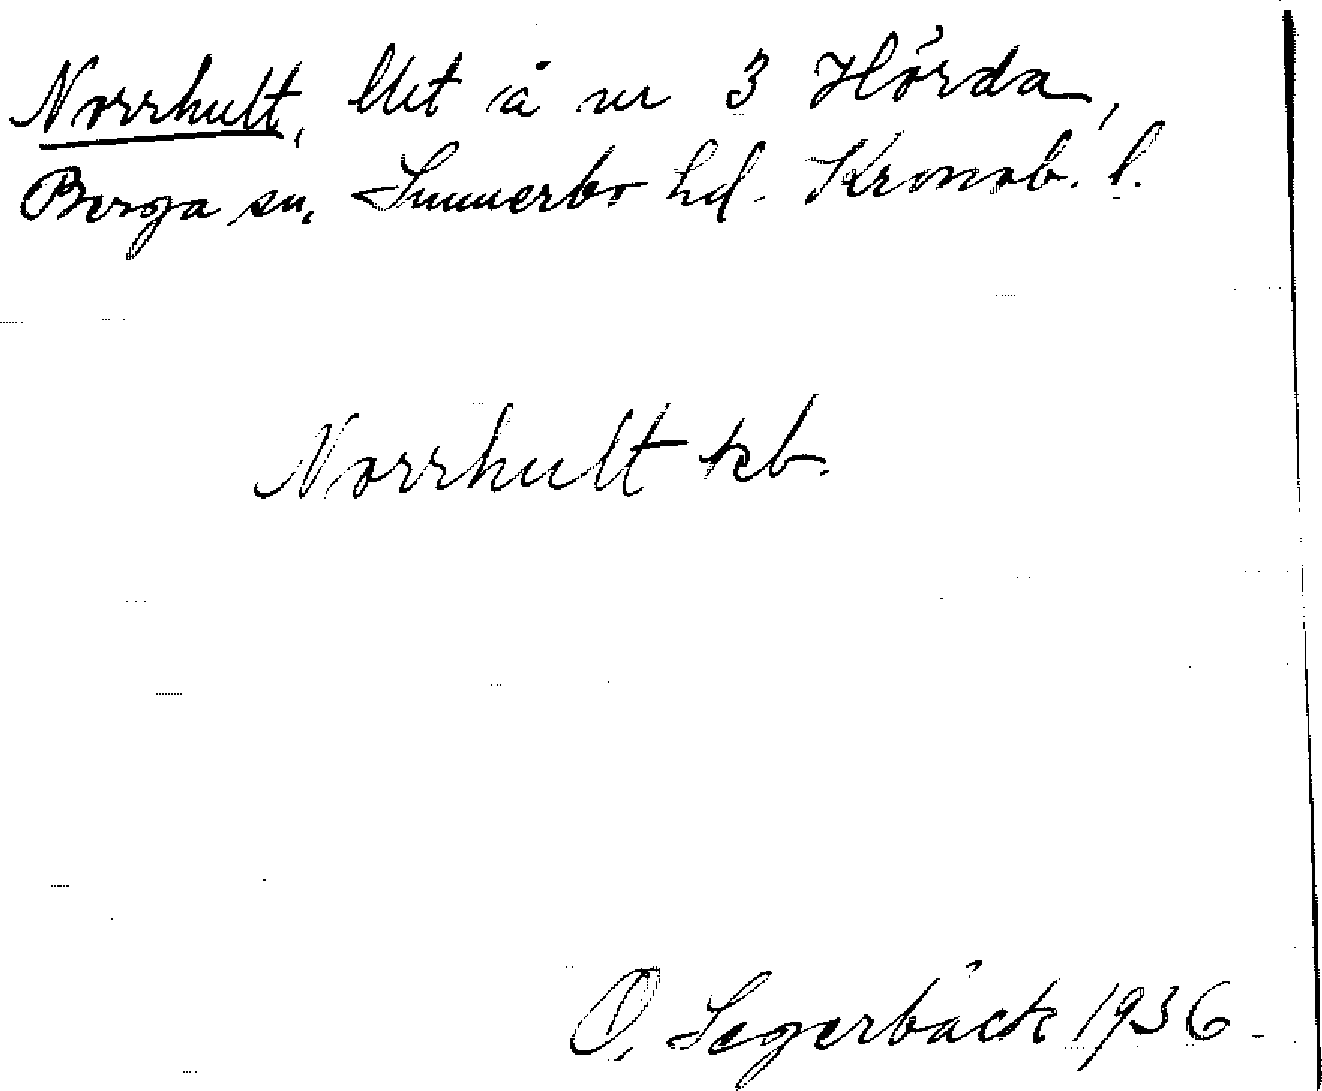 Norrhult, lht å nr 3 Hörda,
Berga sn, Sunnerbo hd. Kronob. l.
Norrhult kb.
O. Segerbäck 1936